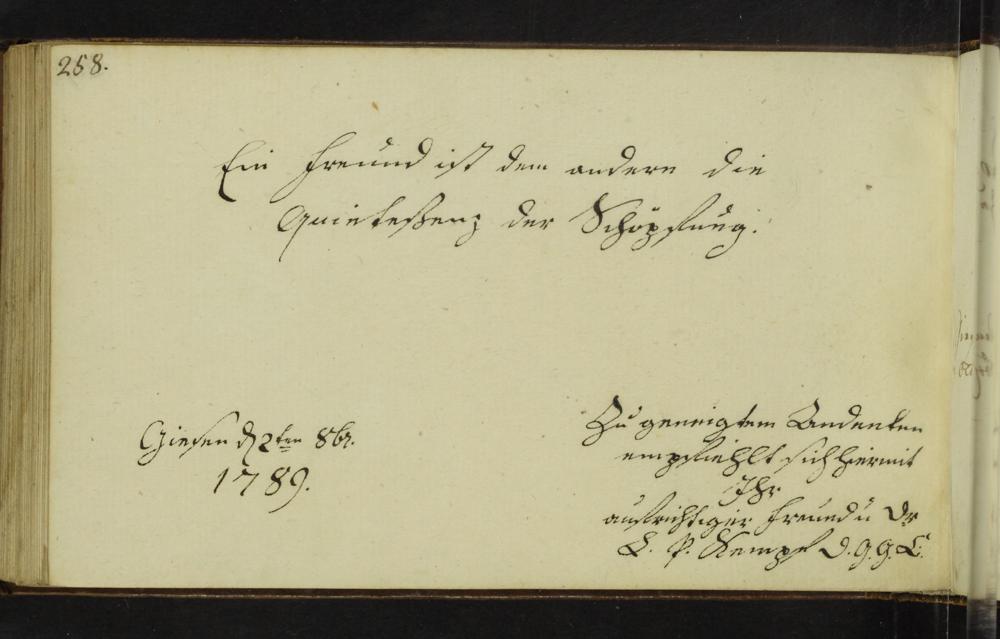 258.
Ein Freund ist dem andern die
Quinteßenz der Schöpfung.
Giesen d 2ten 8br.
1789.
Zu geneigtem Andenken
empfiehlt sich hiermit
Ihr
aufrichtiger Freund u Dr
P. Kempf D. G. G. C.